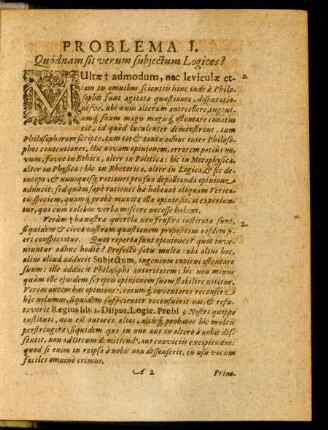 PROBLEMA I.
Quidnam sit verum subjectum Logices?
MUltæ † admodum, nec leviculæ et-
iam in omnibus scientiis hinc inde à Philo-
sophis sunt agitatæ quæstiones, disputatio-
nesque, ubi unus alterum antecellere, ingeni-
umque suum magis magisque ostentare conatus
erit, id quod luculenter demonstrant, tum
Philosophorum scripta, tum tot & tantæ adhuc inter Philoso-
phos contentiones. Hic novam opinionem, errorem potius no-
vum, fovet in Ethica, alter in Politica: hic in Metaphysica,
alter in Physica: hic in Rhetorica, alter in Logica & sic de-
inceps: & unusquisque rationes pro sua defendenda opinione
adducit: sed quàm sæpè rationes hæ habeant aliquam Verita-
tis speciem, quamque probè munita illa opinio sit, ii experiun-
tur, qui cum talibus verba miscere necesse habent.
Verùm † ha nostræ querelæ non frustra institutæ sunt,
siquidem & circa nostram quæstionem propositam eosdem fi-
eri conspicimus. Quot reperta sunt opiniones? quot inve-
niuntur adhuc hodie? Profectò satis multæ: ubi alius hoc,
alius aliud adducit Subjectum, ingenium enim ostentare
suum: ille adducit Philosophi autoritatem; hic non minus
quàm ille ejusdem scriptis opinionem suam stabilire nititur.
Parcas autem has opiniones, earumque inventores recensere
hic nolumus, siquidem sufficienter recensuerit eas & refu-
taverit Regius lib. 1. Disput. Logic. Probl. 3. Nostri quippe
instituti, non est autores alios, aliosque probatos hic multis
perstringere: siquidem qui in uno aut in altero à nobis dis-
sentit, non ad Orcum demittend9, aut convitiis excipiendus:
quod si enim in reipsa à nobis non dissenserit, in usu vocum
faciles omninò erimus.
A 2 Prima.
2.